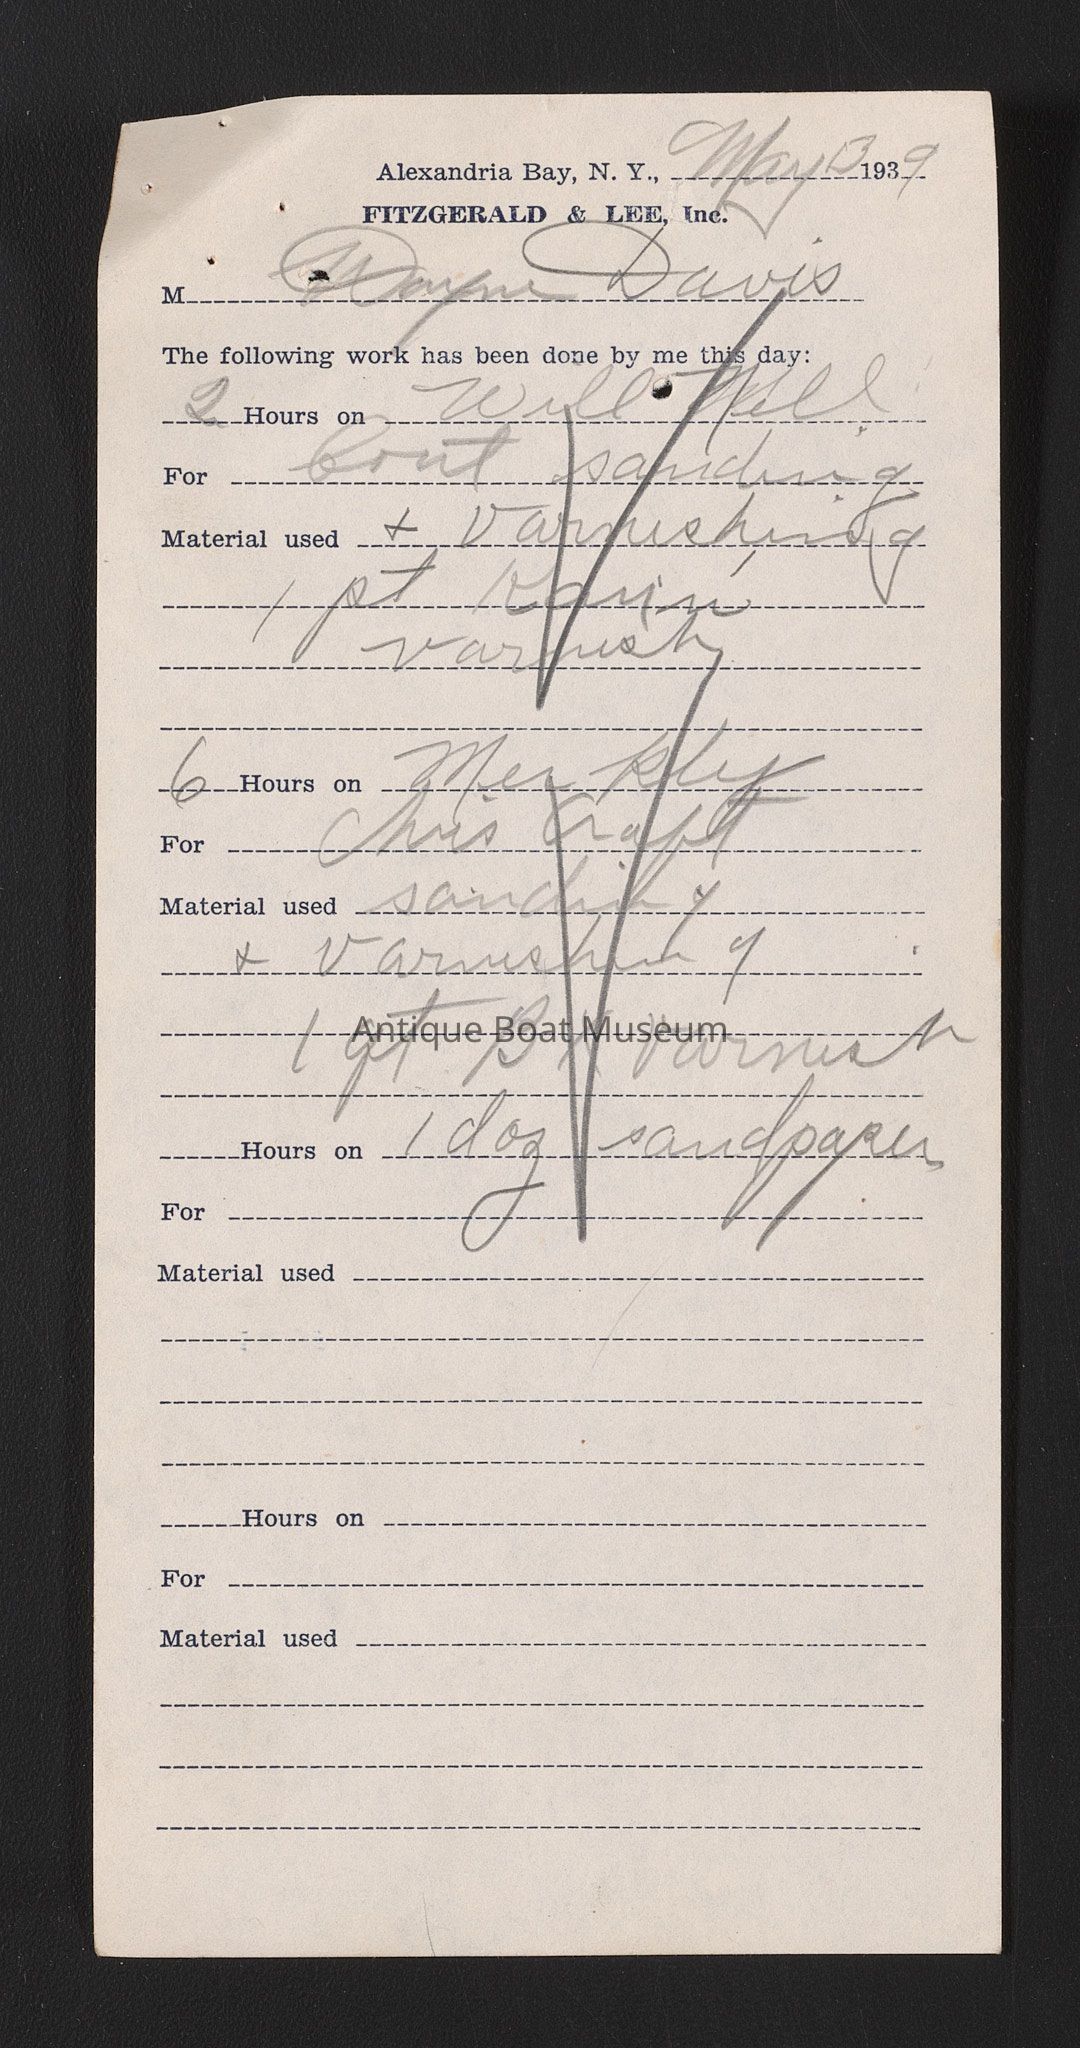 Alexandria Bay, N. Y., May 13 1939
FITZGERALD & LEE, Inc.
M Wayne Davis
The following work has been done by me this day:
2 Hours on Will
For Boat sanding
Material used + Varnishing
1 pt
varnish
6 Hours on Merkley
For Chris Craft
Material used sanding
+ Varnishing
Antique Boat Museum
1 qt Varnish
Hours on 1 doz sandpaper
For
Material used
Hours on
For
Material used